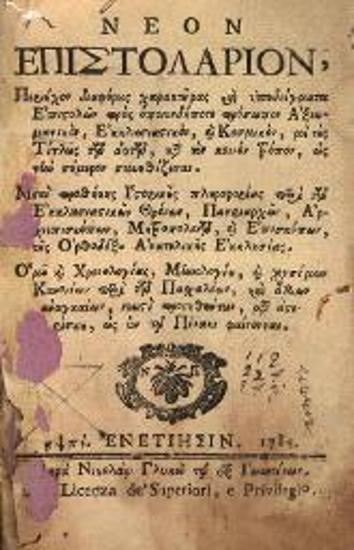 ΝΕΟΝ
ΕΠΙΣΤΟΛΑΡΙΟΝ,
Περιέχον διαφόρους χαρακτῆρας καὶ ὑποδείγματα
Ἐπιστολῶν πρὸς πρόσωπον Ἀξιω-
ματικὸν, Ἐκκλησιαστικὸν, καὶ Κοσμικὸν, μὲ τὰς
Τίτλας τῶν κατὰ τὸν κοινὸν τρόπον, ὡς
τὴν σήμερον συνηθίζεται.
Μετὰ προσθήκης Ἱστορικῆς πληροφορίας περὶ τῶν
Ἐκκλησιαστικῶν Θρόνων, Πατριαρχῶν, Ἀρ-
χιεπισκόπων, Μητροπολιτῶν, καὶ Ἐπισκόπων,
τῆς Ὀρθοδόξου Ἀνατολικῆς Ἐκκλησίας.
Ὁμοῦ καὶ Χρησολογίας, Μηνολογίου, καὶ χρησίμων
Κανονίων περὶ τοῦ Πασχαλίου, καὶ ἄλλων
ἀναγκαίων,
ὡς ἐν τῷ Πίνακι φαίνονται.
Ν
ΕΝΕΤΙΗΣΙΝ.
Νικολάῳ Γλυκεῖ τῷ ἐξ Ἰωαννίνων.
Licenza de' Superiori, e Privilegio.